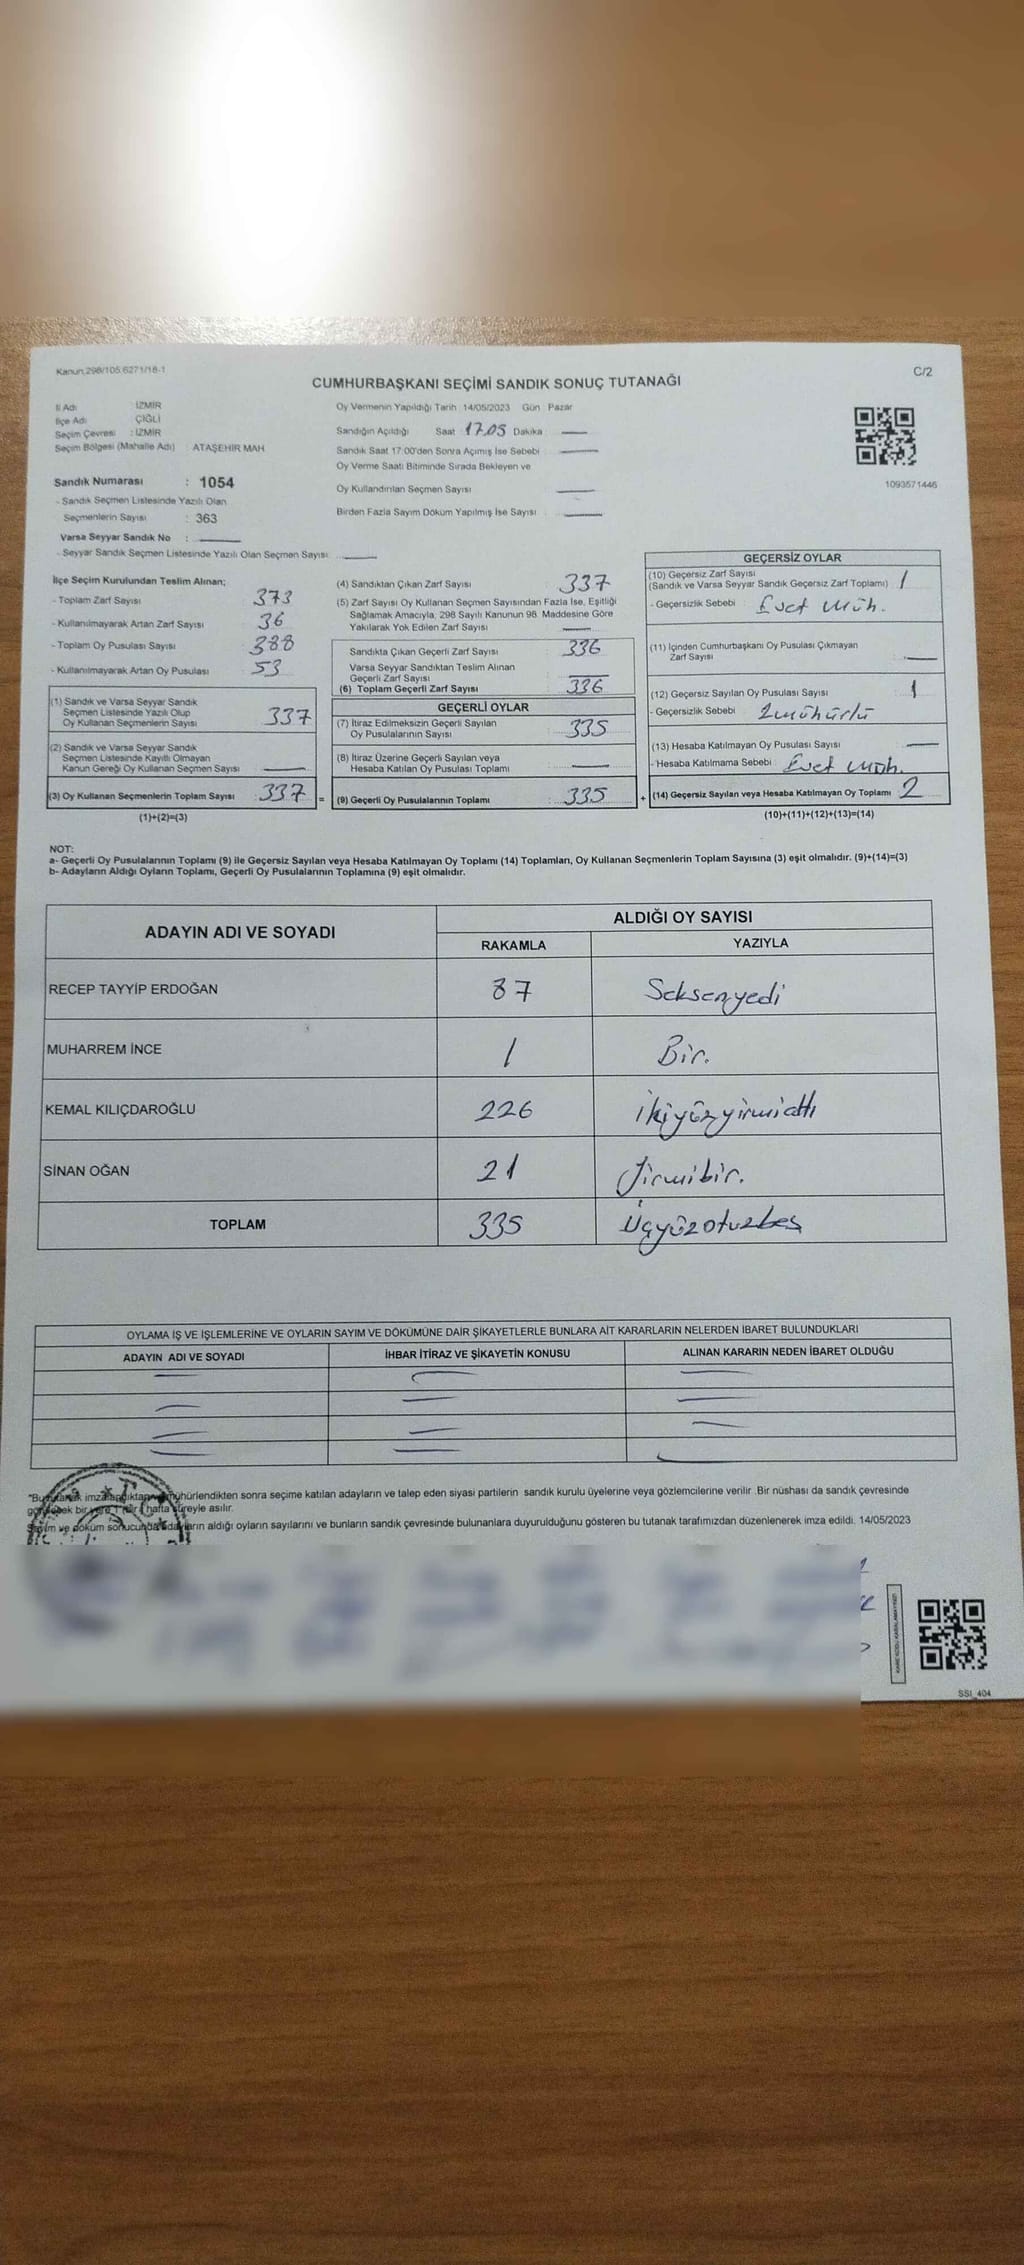 Kanun 298/105,6271/18-1
C/2
CUMHURBAŞKANI SEÇİMİ SANDIK SONUÇ TUTANAĞI
İl Adı : İZMİR
İlçe Adı : ÇİĞLİ
Seçim Çevresi : İZMİR
Seçim Bölgesi (Mahalle Adı) ATAŞEHİR MAH
Sandık Numarası : 1054
- Sandık Seçmen Listesinde Yazılı Olan
Seçmenlerin Sayısı : 363
Varsa Seyyar Sandık No :
- Seyyar Sandık Seçmen Listesinde Yazılı Olan Seçmen Sayısı :
Oy Vermenin Yapıldığı Tarih 14/05/2023 Gün Pazar
Sandığın Açıldığı Saat 17.05 Dakika
Sandık Saat 17:00'den Sonra Açımış İse Sebebi
Oy Verme Saati Bitiminde Sırada Bekleyen ve
Oy Kullandırılan Seçmen Sayısı
Birden Fazla Sayım Döküm Yapılmış İse Sayısı
1093571446
İlçe Seçim Kurulundan Teslim Alınan;
- Toplam Zarf Sayısı : 373
- Kullanılmayarak Artan Zarf Sayısı : 36
- Toplam Oy Pusulası Sayısı : 388
- Kullanılmayarak Artan Oy Pusulası : 53
(1) Sandık ve Varsa Seyyar Sandık
Seçmen Listesinde Yazılı Olup
Oy Kullanan Seçmenlerin Sayısı : 337
(2) Sandık ve Varsa Seyyar Sandık
Seçmen Listesinde Kayıtlı Olmayan
Kanun Gereği Oy Kullanan Seçmen Sayısı :
(3) Oy Kullanan Seçmenlerin Toplam Sayısı : 337 =
(1)+(2)=(3)
(4) Sandıktan Çıkan Zarf Sayısı : 337
(5) Zarf Sayısı Oy Kullanan Seçmen Sayısından Fazla İse, Eşitliği
Sağlamak Amacıyla, 298 Sayılı Kanunun 98. Maddesine Göre
Yakılarak Yok Edilen Zarf Sayısı :
Sandıkta Çıkan Geçerli Zarf Sayısı : 336
Varsa Seyyar Sandıktan Teslim Alınan
Geçerli Zarf Sayısı :
(6) Toplam Geçerli Zarf Sayısı : 336
GEÇERLİ OYLAR
(7) İtiraz Edilmeksizin Geçerli Sayılan
Oy Pusulalarının Sayısı : 335
(8) İtiraz Üzerine Geçerli Sayılan veya
Hesaba Katılan Oy Pusulası Toplamı :
(9) Geçerli Oy Pusulalarının Toplamı : 335 +
GEÇERSİZ OYLAR
(10) Geçersiz Zarf Sayısı
(Sandık ve Varsa Seyyar Sandık Geçersiz Zarf Toplamı) : 1
- Geçersizlik Sebebi : Evet Müh.
(11) İçinden Cumhurbaşkanı Oy Pusulası Çıkmayan
Zarf Sayısı :
(12) Geçersiz Sayılan Oy Pusulası Sayısı : 1
- Geçersizlik Sebebi : 2mühürlü
(13) Hesaba Katılmayan Oy Pusulası Sayısı :
- Hesaba Katılmama Sebebi : Evet Müh.
(14) Geçersiz Sayılan veya Hesaba Katılmayan Oy Toplamı : 2
(10)+(11)+(12)+(13)=(14)
NOT:
a- Geçerli Oy Pusulalarının Toplamı (9) ile Geçersiz Sayılan veya Hesaba Katılmayan Oy Toplamı (14) Toplamları, Oy Kullanan Seçmenlerin Toplam Sayısına (3) eşit olmalıdır. (9)+(14)=(3)
b- Adayların Aldığı Oyların Toplamı, Geçerli Oy Pusulalarının Toplamına (9) eşit olmalıdır.
ADAYIN ADI VE SOYADI
ALDIĞI OY SAYISI
RAKAMLA YAZIYLA
RECEP TAYYİP ERDOĞAN 87 Seksenyedi
MUHARREM İNCE 1 Bir.
KEMAL KILIÇDAROĞLU 226 ikiyüzyirmialtı
SİNAN OĞAN 21 Yirmibir.
TOPLAM 335 Üçyüzotuzbeş
OYLAMA İŞ VE İŞLEMLERİNE VE OYLARIN SAYIM VE DÖKÜMÜNE DAİR ŞİKAYETLERLE BUNLARA AİT KARARLARIN NELERDEN İBARET BULUNDUKLARI
ADAYIN ADI VE SOYADI İHBAR İTİRAZ VE ŞİKAYETİN KONUSU ALINAN KARARIN NEDEN İBARET OLDUĞU
"Bu tutanak imzalandıktan ve mühürlendikten sonra seçime katılan adayların ve talep eden siyasi partilerin sandık kurulu üyelerine veya gözlemcilerine verilir. Bir nüshası da sandık çevresinde
görülecek bir yere 1 (bir) hafta süreyle asılır.
Sayım ve döküm sonucunda adayların aldığı oyların sayılarını ve bunların sandık çevresinde bulunanlara duyurulduğunu gösteren bu tutanak tarafımızdan düzenlenerek imza edildi. 14/05/2023
SSI_404